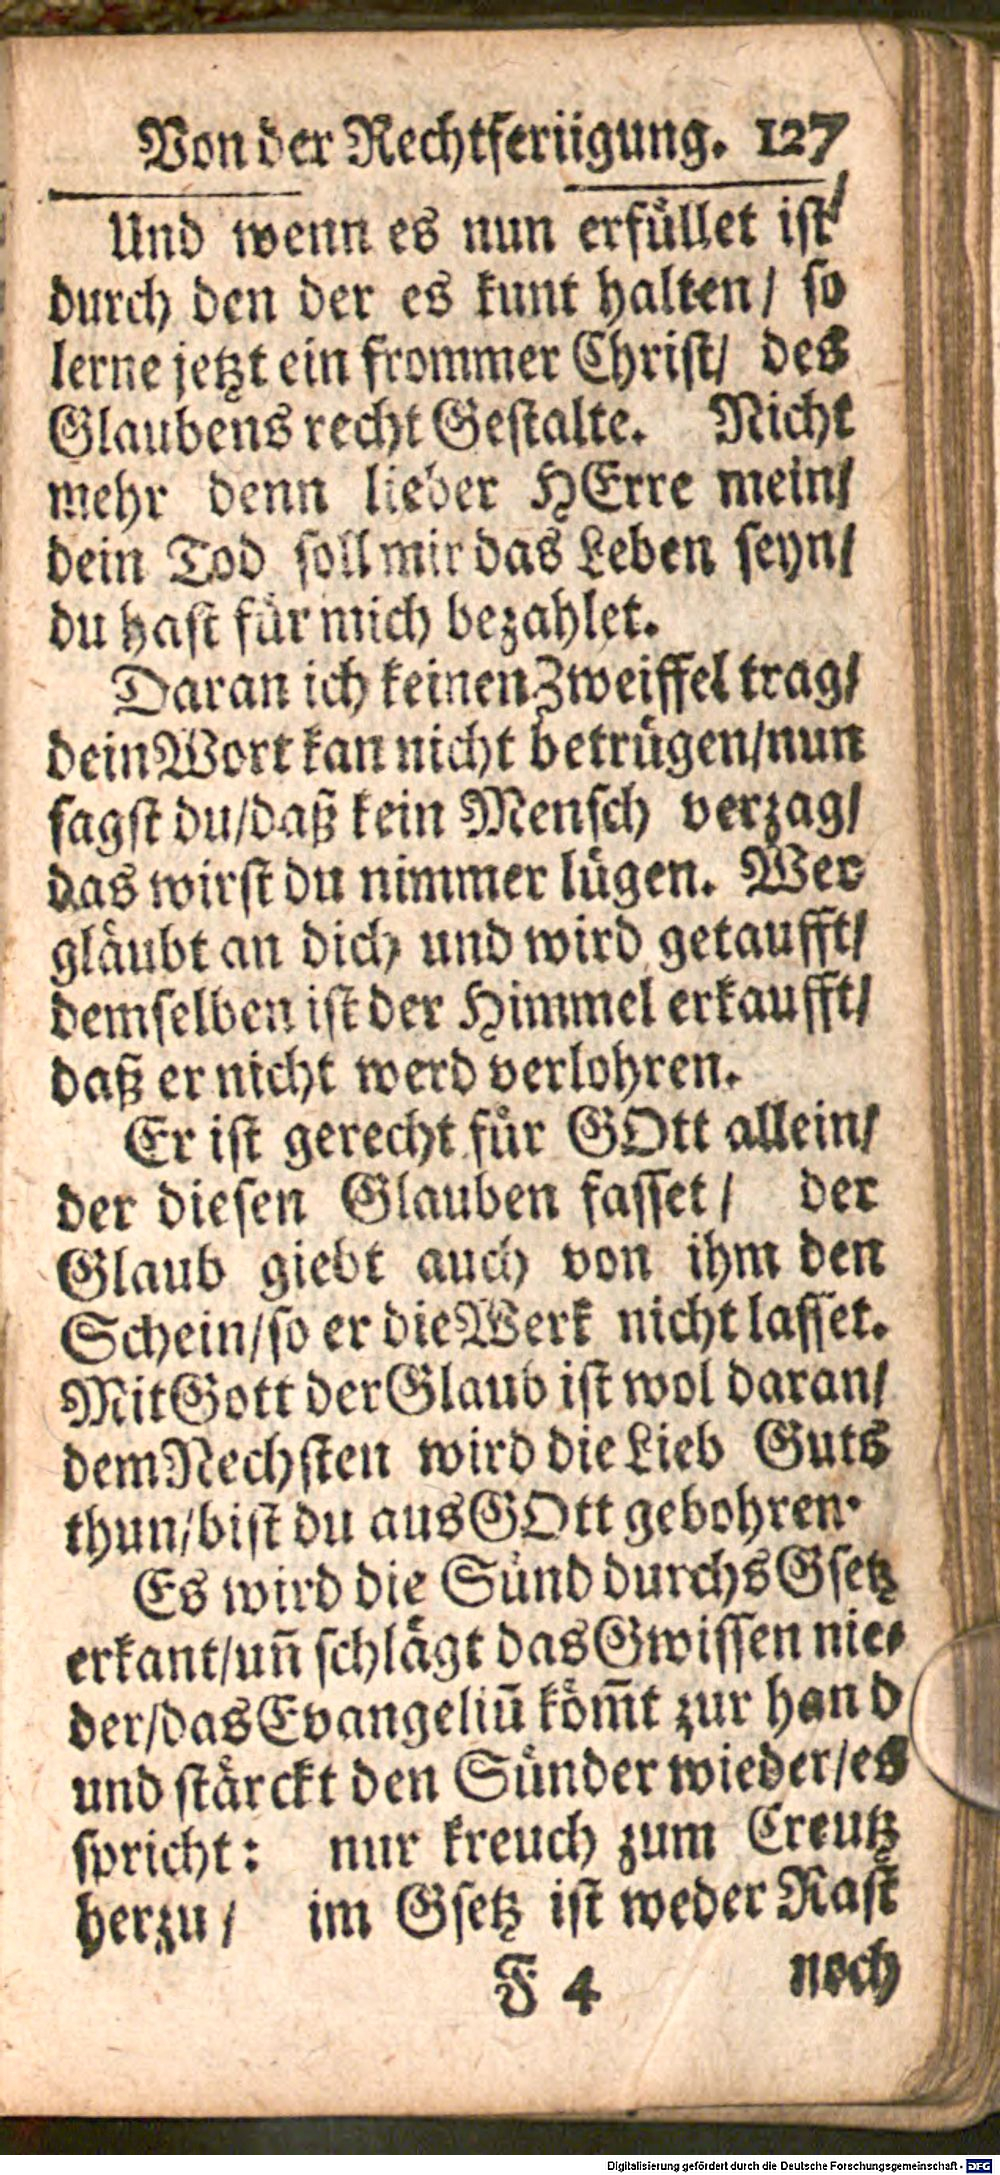 Von der Rechtferiigung. 127
Und wenn es nun erfüllet ist/
durch den der es kunt halten/ so
lerne jetzt ein frommer Christ/ des
Glaubens recht Gestalte. Nicht
mehr denn lieber HErre mein/
dein Tod soll mir das Leben seyn/
du hast für mich bezahlet.
Daran ich keinen Zweiffel trag/
dein Wort kan nicht betrügen/nun
sagst du/daß kein Mensch verzag/
das wirst du nimmer lügen. Wer
gläubt an dich und wird getaufft/
demselben ist der Himmel erkaufft/
daß er nicht werd verlohren.
Er ist gerecht für GOtt allein/
der diesen Glauben fasset/ der
Glaub giebt auch von ihm den
Schein/so er die Werk nicht lasset.
Mit Gott der Glaub ist wol daran/
dem Nechsten wird die Lieb Guts
thun/bist du aus GOtt gebohren.
Es wird die Sünd durchs Gsetz
erkant/un̄ schlägt das Gwissen nie-
der/das Evangeliū köm̄t zur hand
und stärckt den Sünder wieder/es
spricht: nur kreuch zum Creutz
herzu/ im Gsetz ist weder Rast
F 4 noch
Digitalisierung gefördert durch die Deutsche Forschungsgemeinschaft - DFG